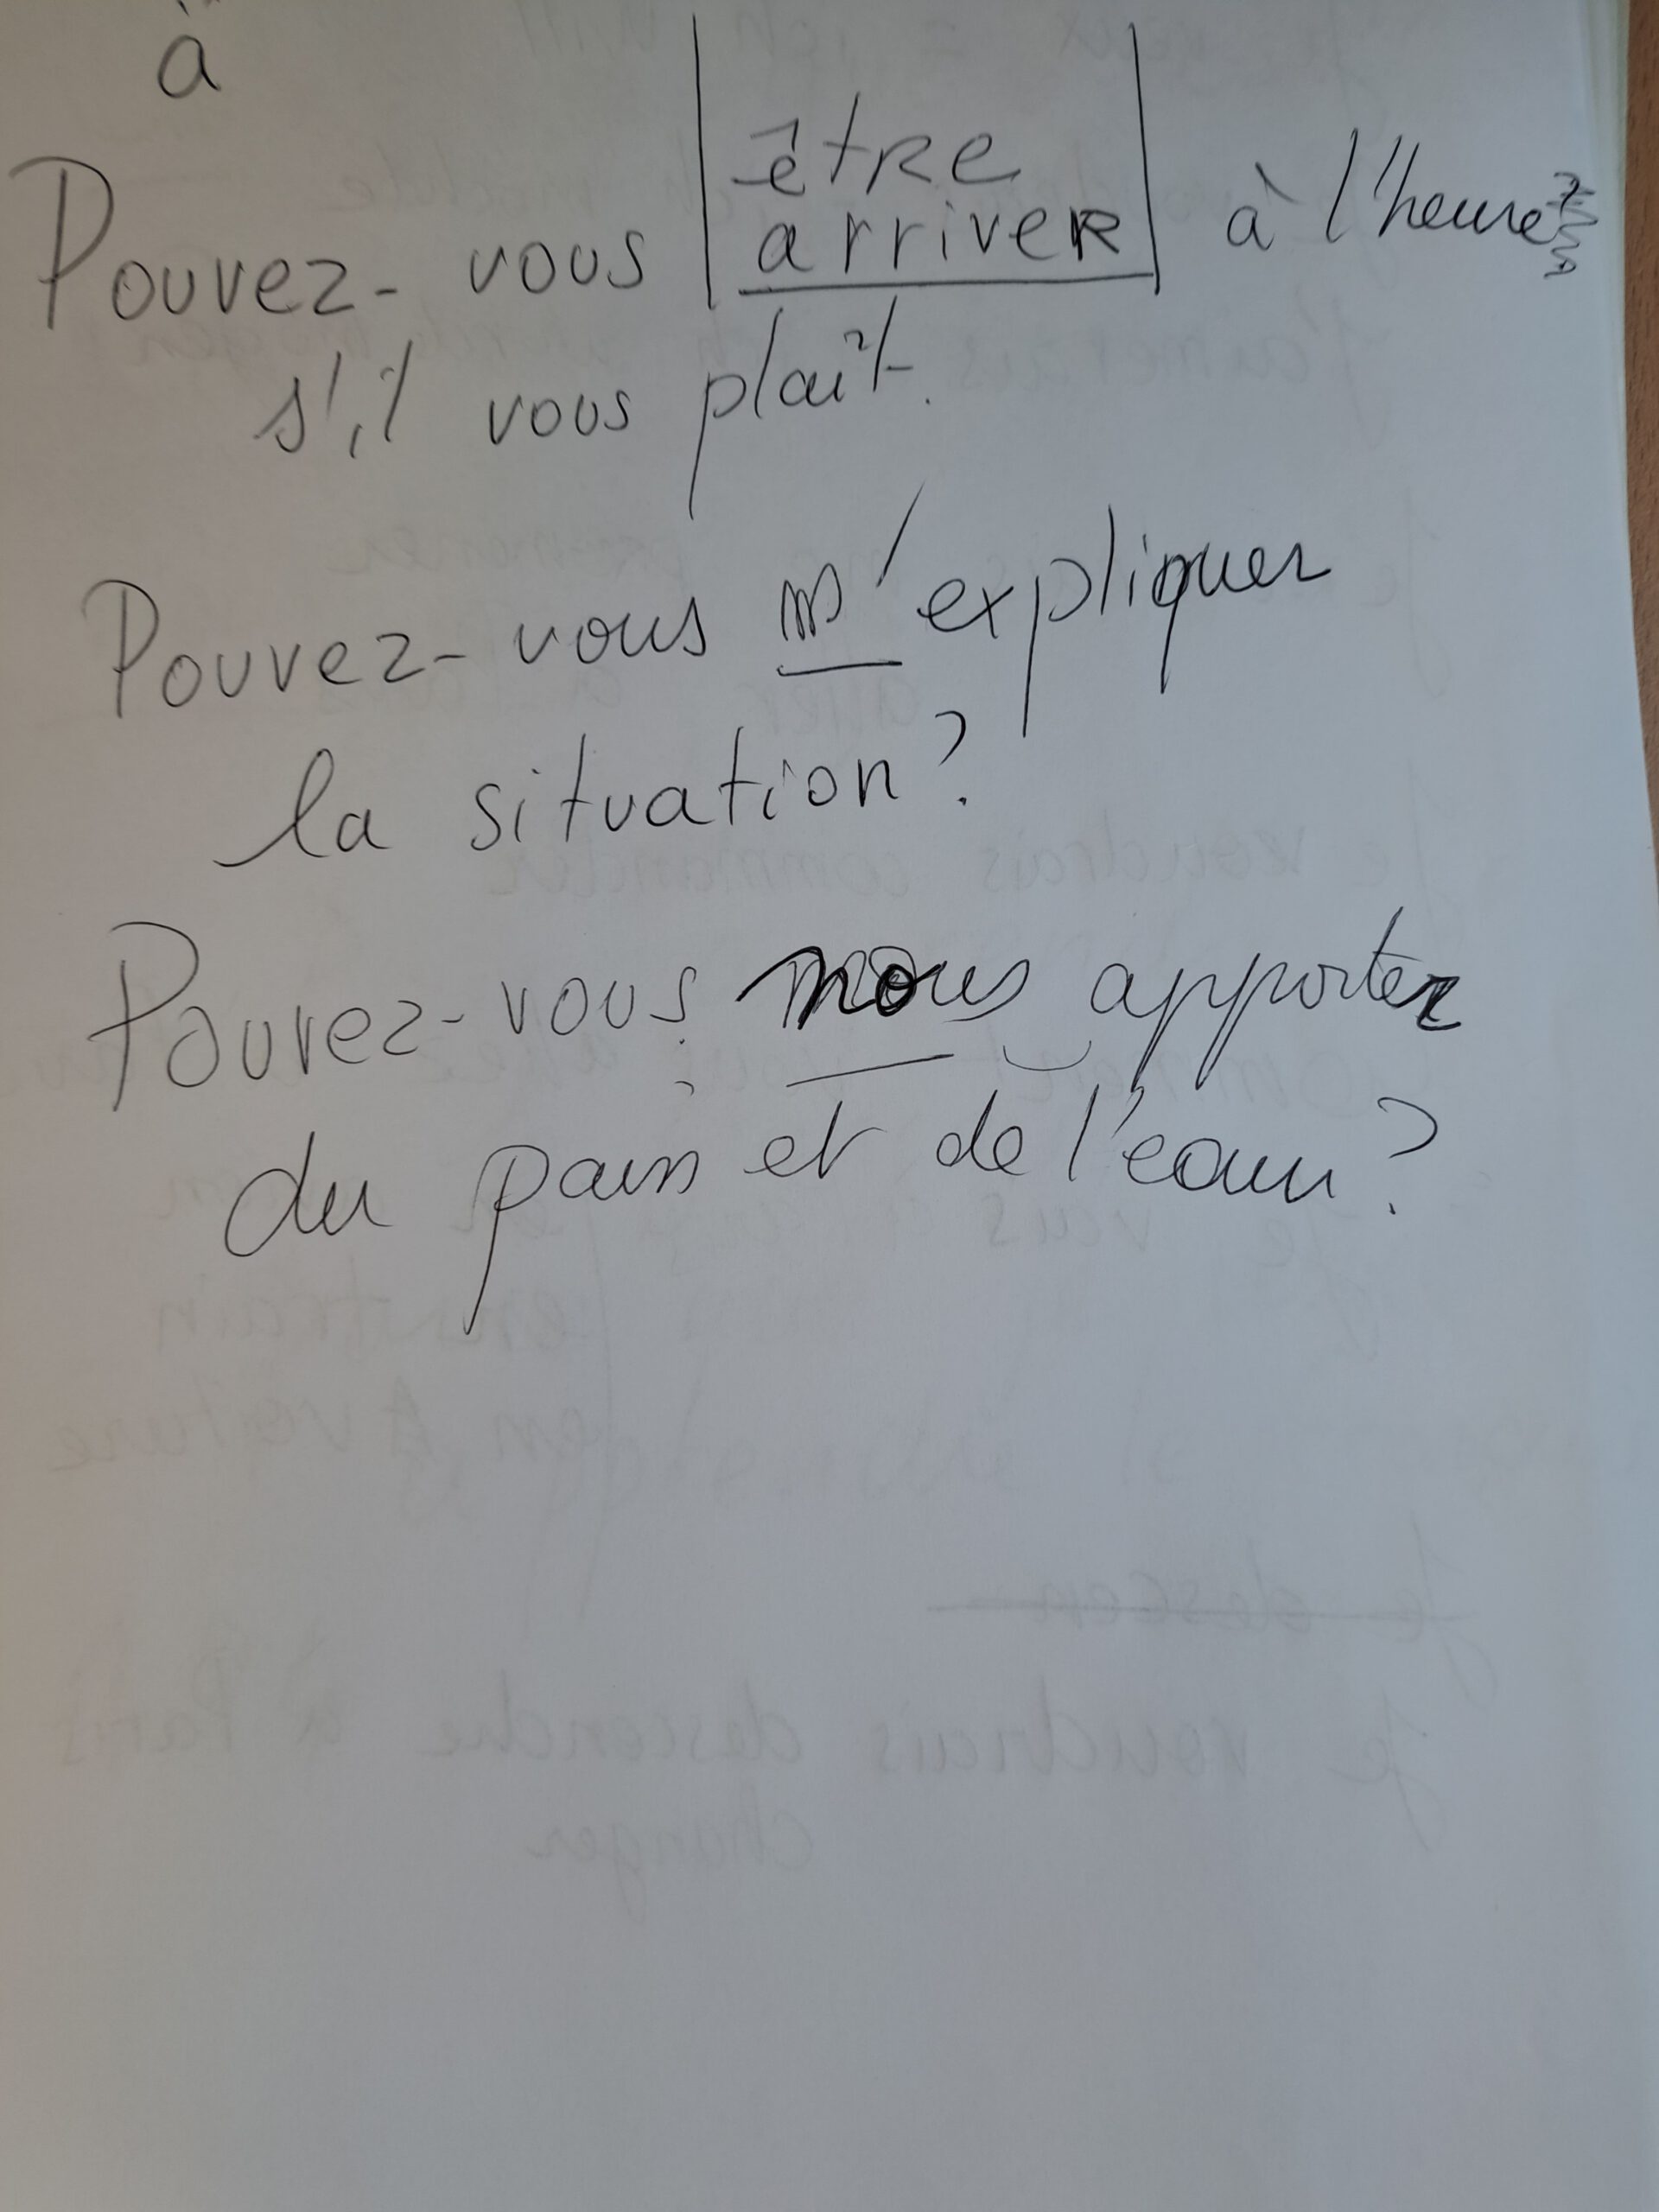 à
être
Pouvez-vous arriver à l'heure
s'il vous plaît.
Pouvez-vous m'expliquer
la situation?
Pouvez-vous nous apporter
du pain et de l'eau?